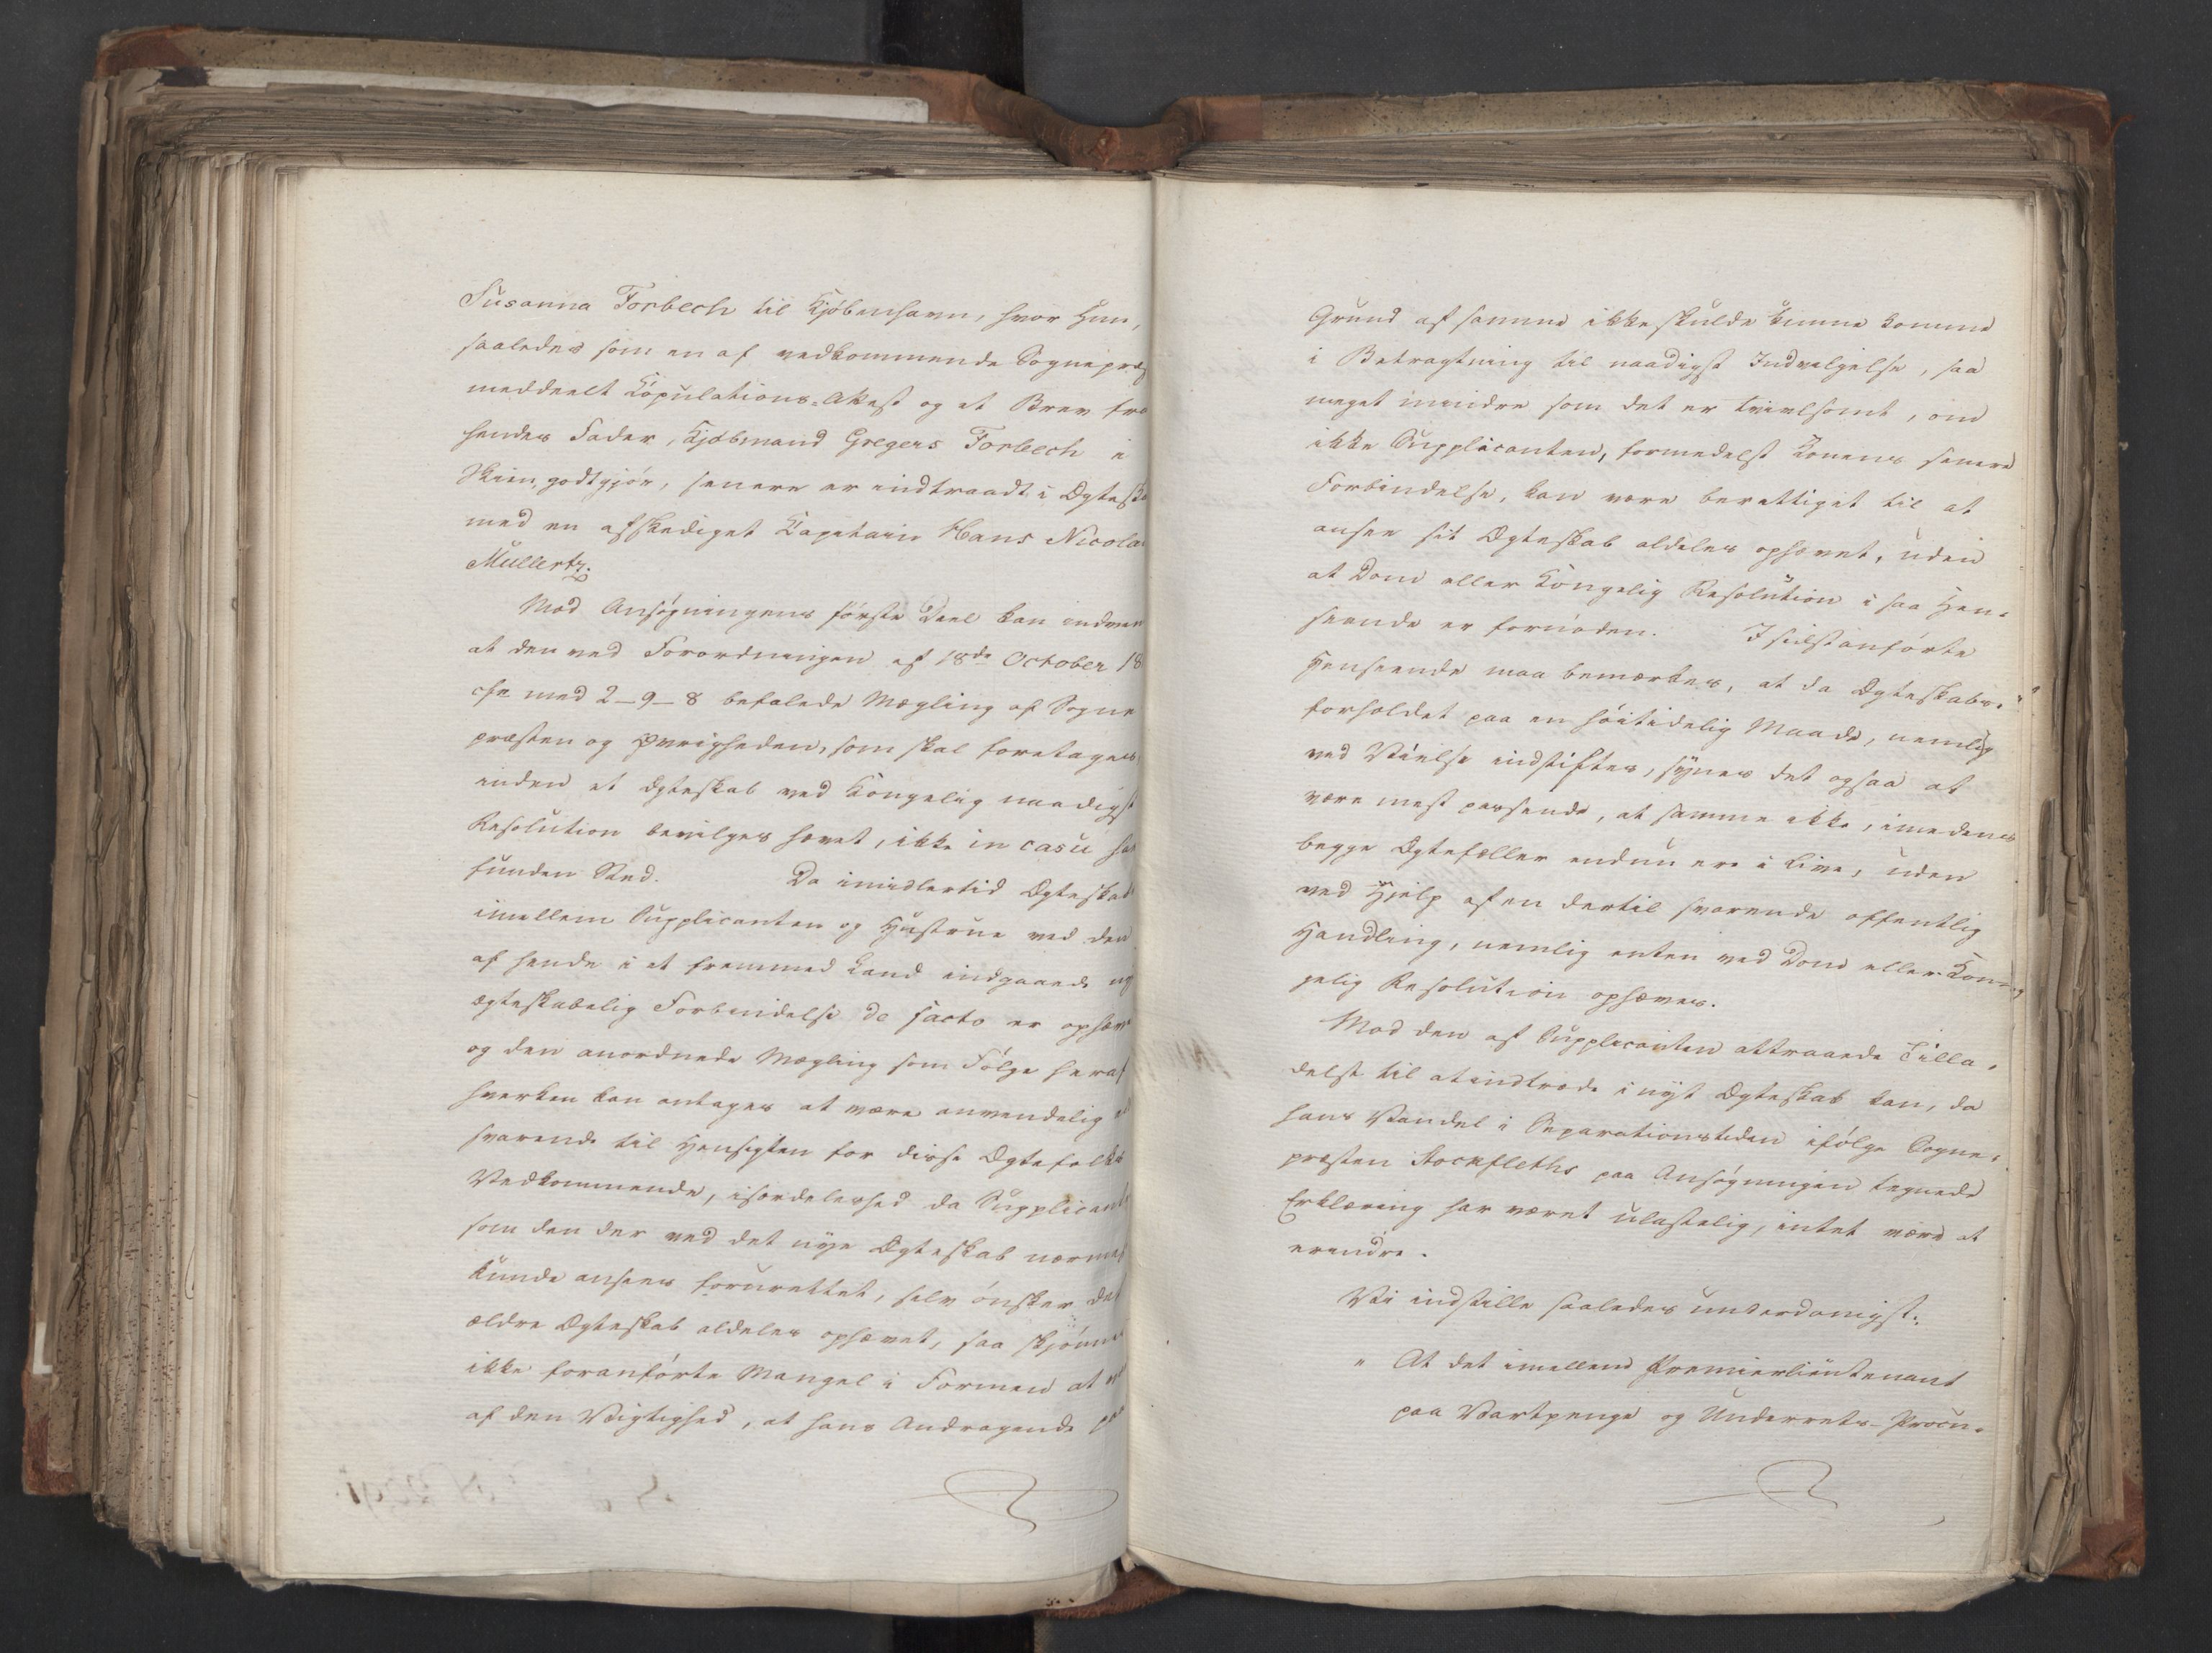 Susanna Forbech til Kjöbenhavn, hvor Hun,
saaledes som en af vedkommende Sognepræs
meddeelt Kopulations-Attest og et Brev fra
hendes Fader, Kjöbmand Gregers Forbech i
Skien, godtgjör, senere er indtraadt i Ægteska
med en afskediget Kapitain Hans Nicolai
Müllertz.
Mod Ansögningens förste Deel kan indven
at den ved Forordningen af 18de October 18
cfr med 2-9-8 befalede Mægling af Sogne
præsten og Øvrigheden, som skal foretages
inden et Ægteskab ved Kongelig naadigst
Resolution bevilges hævet, ikke in casu har
funden Sted. Da imidlertid Ægteskabet
imellem Supplicanten og Hustrue ved den
af hende i et fremmed Land indgaaede ny
ægteskabelig Forbindelse de facto er ophæv
og den anordnede Mægling som Fölge heraf
hverken kan antages at være anvendelig el
svarende til Hensigten for disse Ægtefolks
Vedkommende, isærdeleshed da Supplicante
som den der ved det nye Ægteskab nærmest
kunde ansees forurettet, selv önsker det
ældre Ægteskab aldeles ophævet, saa skjönnes
ikke foranförte Mangel i Formen at være
af den Vigtighed, at hans Andragende paa
Grund af samme ikke skulde kunne komme
i Betragtning til naadigst Indvilgelse, saa
meget mindre som det er tvivlsomt, om
ikke Supplicanten, formedelst Konens senere
Forbindelse, kan være berettiget til at
ansee sit Ægteskab aldeles ophævet, uden
at Dom eller Kongelig Resolution i saa Hen-
seende er fornöden. I sidstanförte
Henseende maa bemærkes, at da Ægteskabs-
forholdet paa en höitidelig Maade, nemlig
ved Vielse indstiftes, synes det ogsaa at
være mest passende, at samme ikke, imedens
begge Ægtefæller endnu ere i Live, uden
ved Hjelp af en dertil svarende offentlig
Handling, nemlig enten ved Dom eller Kon-
gelig Resolution ophæves.
Mod den af Supplicanten attraaede Tilla-
delse til at indtræde i nyt Ægteskab kan, da
hans Vandel i Separationstiden ifölge Sogne-
præsten Stockfleths paa Ansögningen tegnede
Erklæring har været ulastelig, intet være at
erindre.
Vi indstille saaledes underdanigst:
" At det imellem Premierlieutenant
paa Vartpenge og Underrets-Procu-